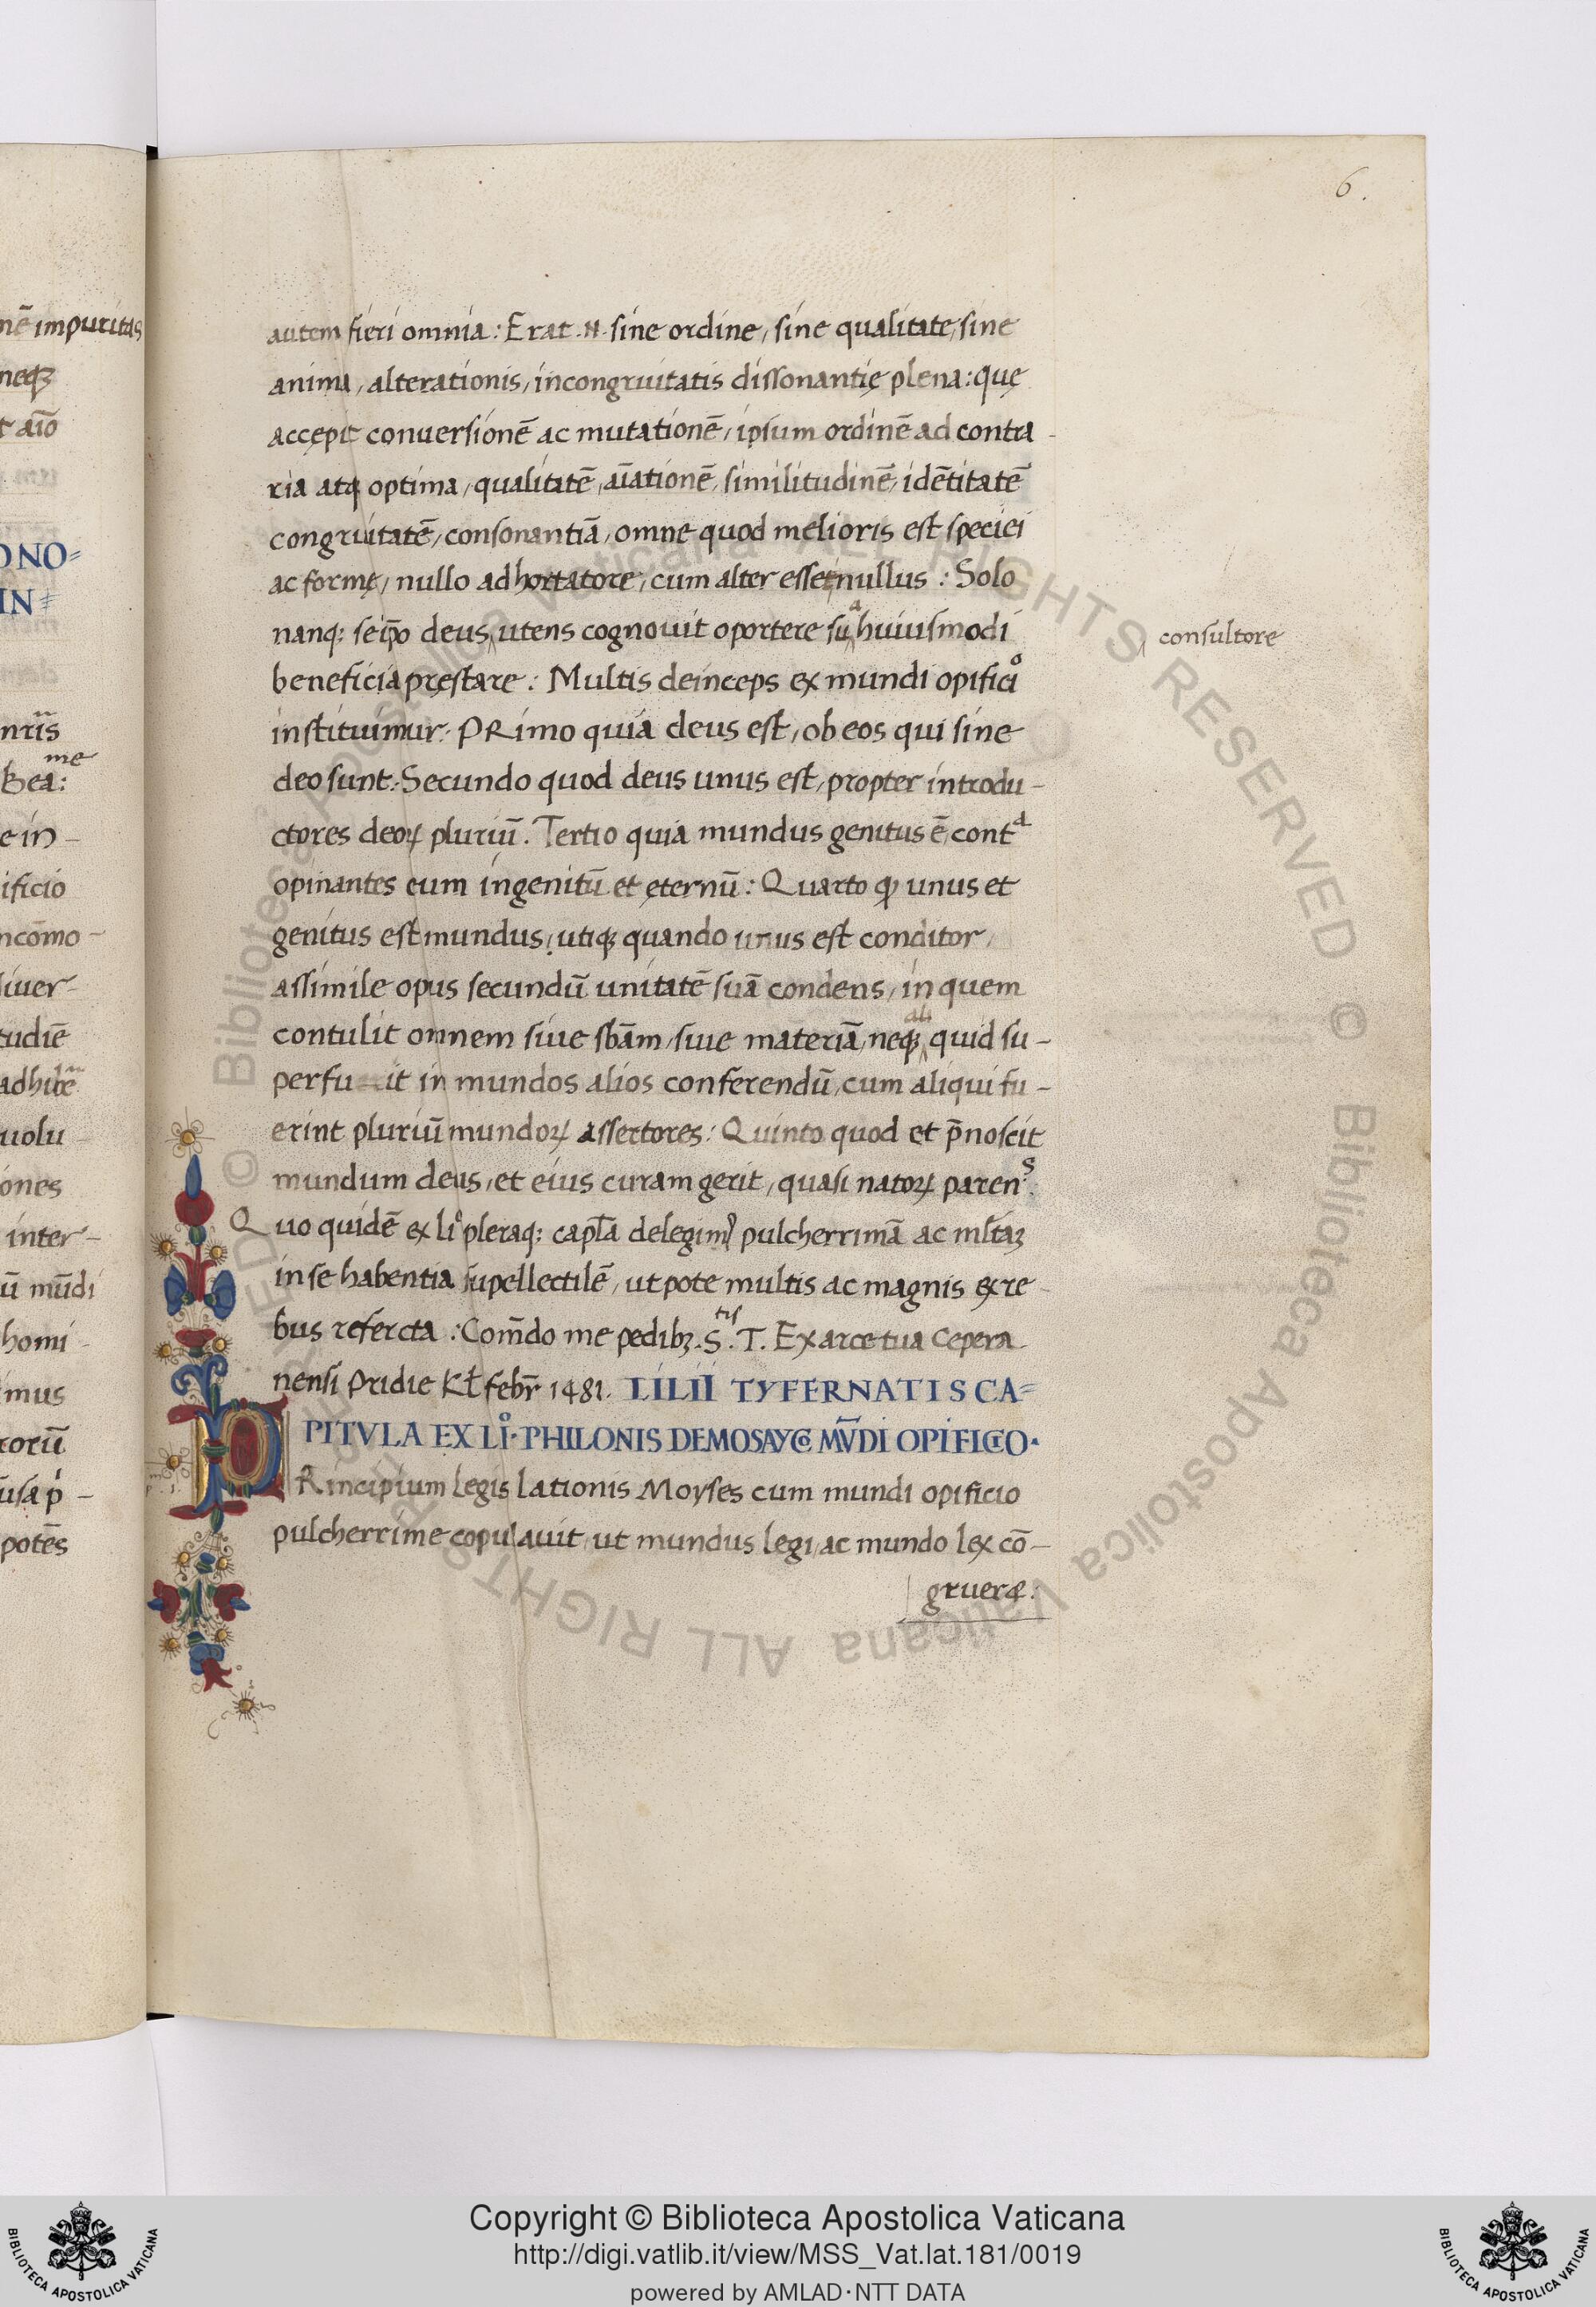 6.
nē impuritas
neqȝ
t aīo
ONO=
IN=
nrīs
me
Bea:
e in -
ificio
ncōmo -
iuer-
tudiē
adhibē
uolu
iones
inter-
ū mūdi
homi -
imus
rorū
usa p -
potēs
autem fieri omnia: Erat .N. sine ordine, sine qualitate, sine
anima, alterationis, incongruitatis dissonantię plena: quę
accępit conuersionē ac mutationē, ipsum ordinē ad contra-
ria atq optima, qualitatē, aīationē, similitudinē, idētitatē
congruitatē, consonantiā, omne quod melioris est speciei
ac formę, nullo adhortatore, cum alter esset nullus: Solo
nanq: seipo deus utens cognouit oportere suᵃ huiusmodi
consultore
beneficia pręstare: Multis deinceps ex mundi opificiº
instituimur: PRimo quia deus est, ob eos qui sine
deo sunt: Secundo quod deus unus est, propter introdu-
ctores deoꝝ pluriū. Tertio quia mundus genitus ē contᵃ
opinantes eum ingenitū et ęternū: Quarto ꝙ unus et
genitus est mundus, utiqȝ quando unus est conditor,
assimile opus secundū unitatē suā condens, in quem
contulit omnem siue sbām, siue materiā, neqȝ ali quid su-
perfu it in mundos alios conferendū, cum aliqui fu-
erint pluriū mundoꝝ assertores: Quinto quod et p̄noscit
mundum deus, et eius curam gerit, quasi natoꝝ parenˢ.
Quo quidē ex liº pleraq: capła delegimꝰ pulcherrimā ac młtaȝ
in se habentia supellectilē, ut pote multis ac magnis ex re-
bus refercta: Com̄do me pedibȝ. S.ᵗⁱˢ T. Ex arce tua Cepera-
nensi Pridie Kł febr̄ 1481. LILII TYFERNATIS CA=
PITVLA EX LIº. PHILONIS DEMOSAYCO MV̄DI OPIFICIO.
PRincipium legis lationis Moyses cum mundi opificio
pulcherrime copulauit, ut mundus legi, ac mundo lex cō-
grueræ:
© Biblioteca Apostolica Vaticana ALL RIGHTS RESERVED © Biblioteca Apostolica Vaticana ALL RIGHTS RESERVED
Copyright © Biblioteca Apostolica Vaticana
http://digi.vatlib.it/view/MSS_Vat.lat.181/0019
powered by AMLAD·NTT DATA
BIBLIOTECA APOSTOLICA VATICANA
BIBLIOTECA APOSTOLICA VATICANA